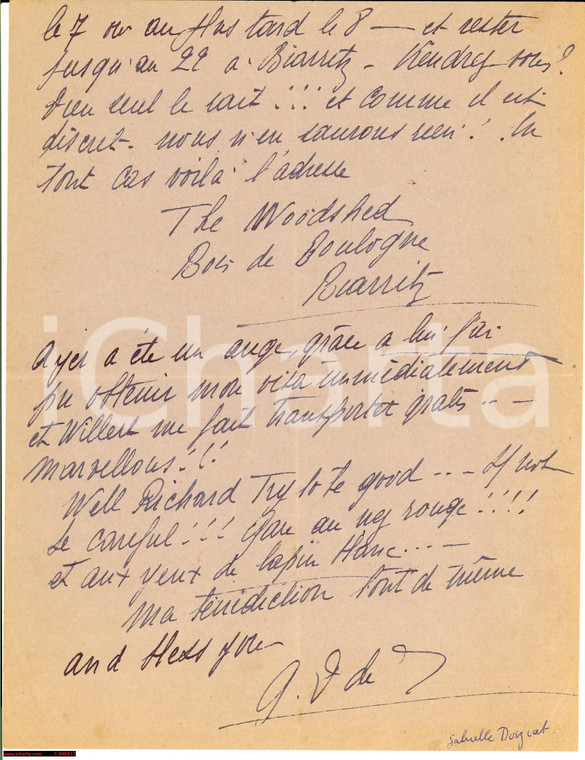 le 7 ou au plus tard le 8 — et rester
jusqu'au 22 à Biarritz - Viendrez-vous?
Dieu seul le sait!!! et comme il est
discret - nous n'en saurons rien! En
tout cas voilà l'adresse
The Woodshed
Bois de Boulogne
Biarritz
a été un ange, grâce à lui j'ai
pu obtenir mon visa immédiatement
et Willert me fait transporter gratis - - -
marvellous!!!
Well Richard Try to be good - - - If not
be careful!!! Gare au nez rouge!!!!
et aux yeux de lapin blanc...-
Ma bénédiction tout de même
and bless you
G. D de
Gabrielle Dorziat.
iCharta